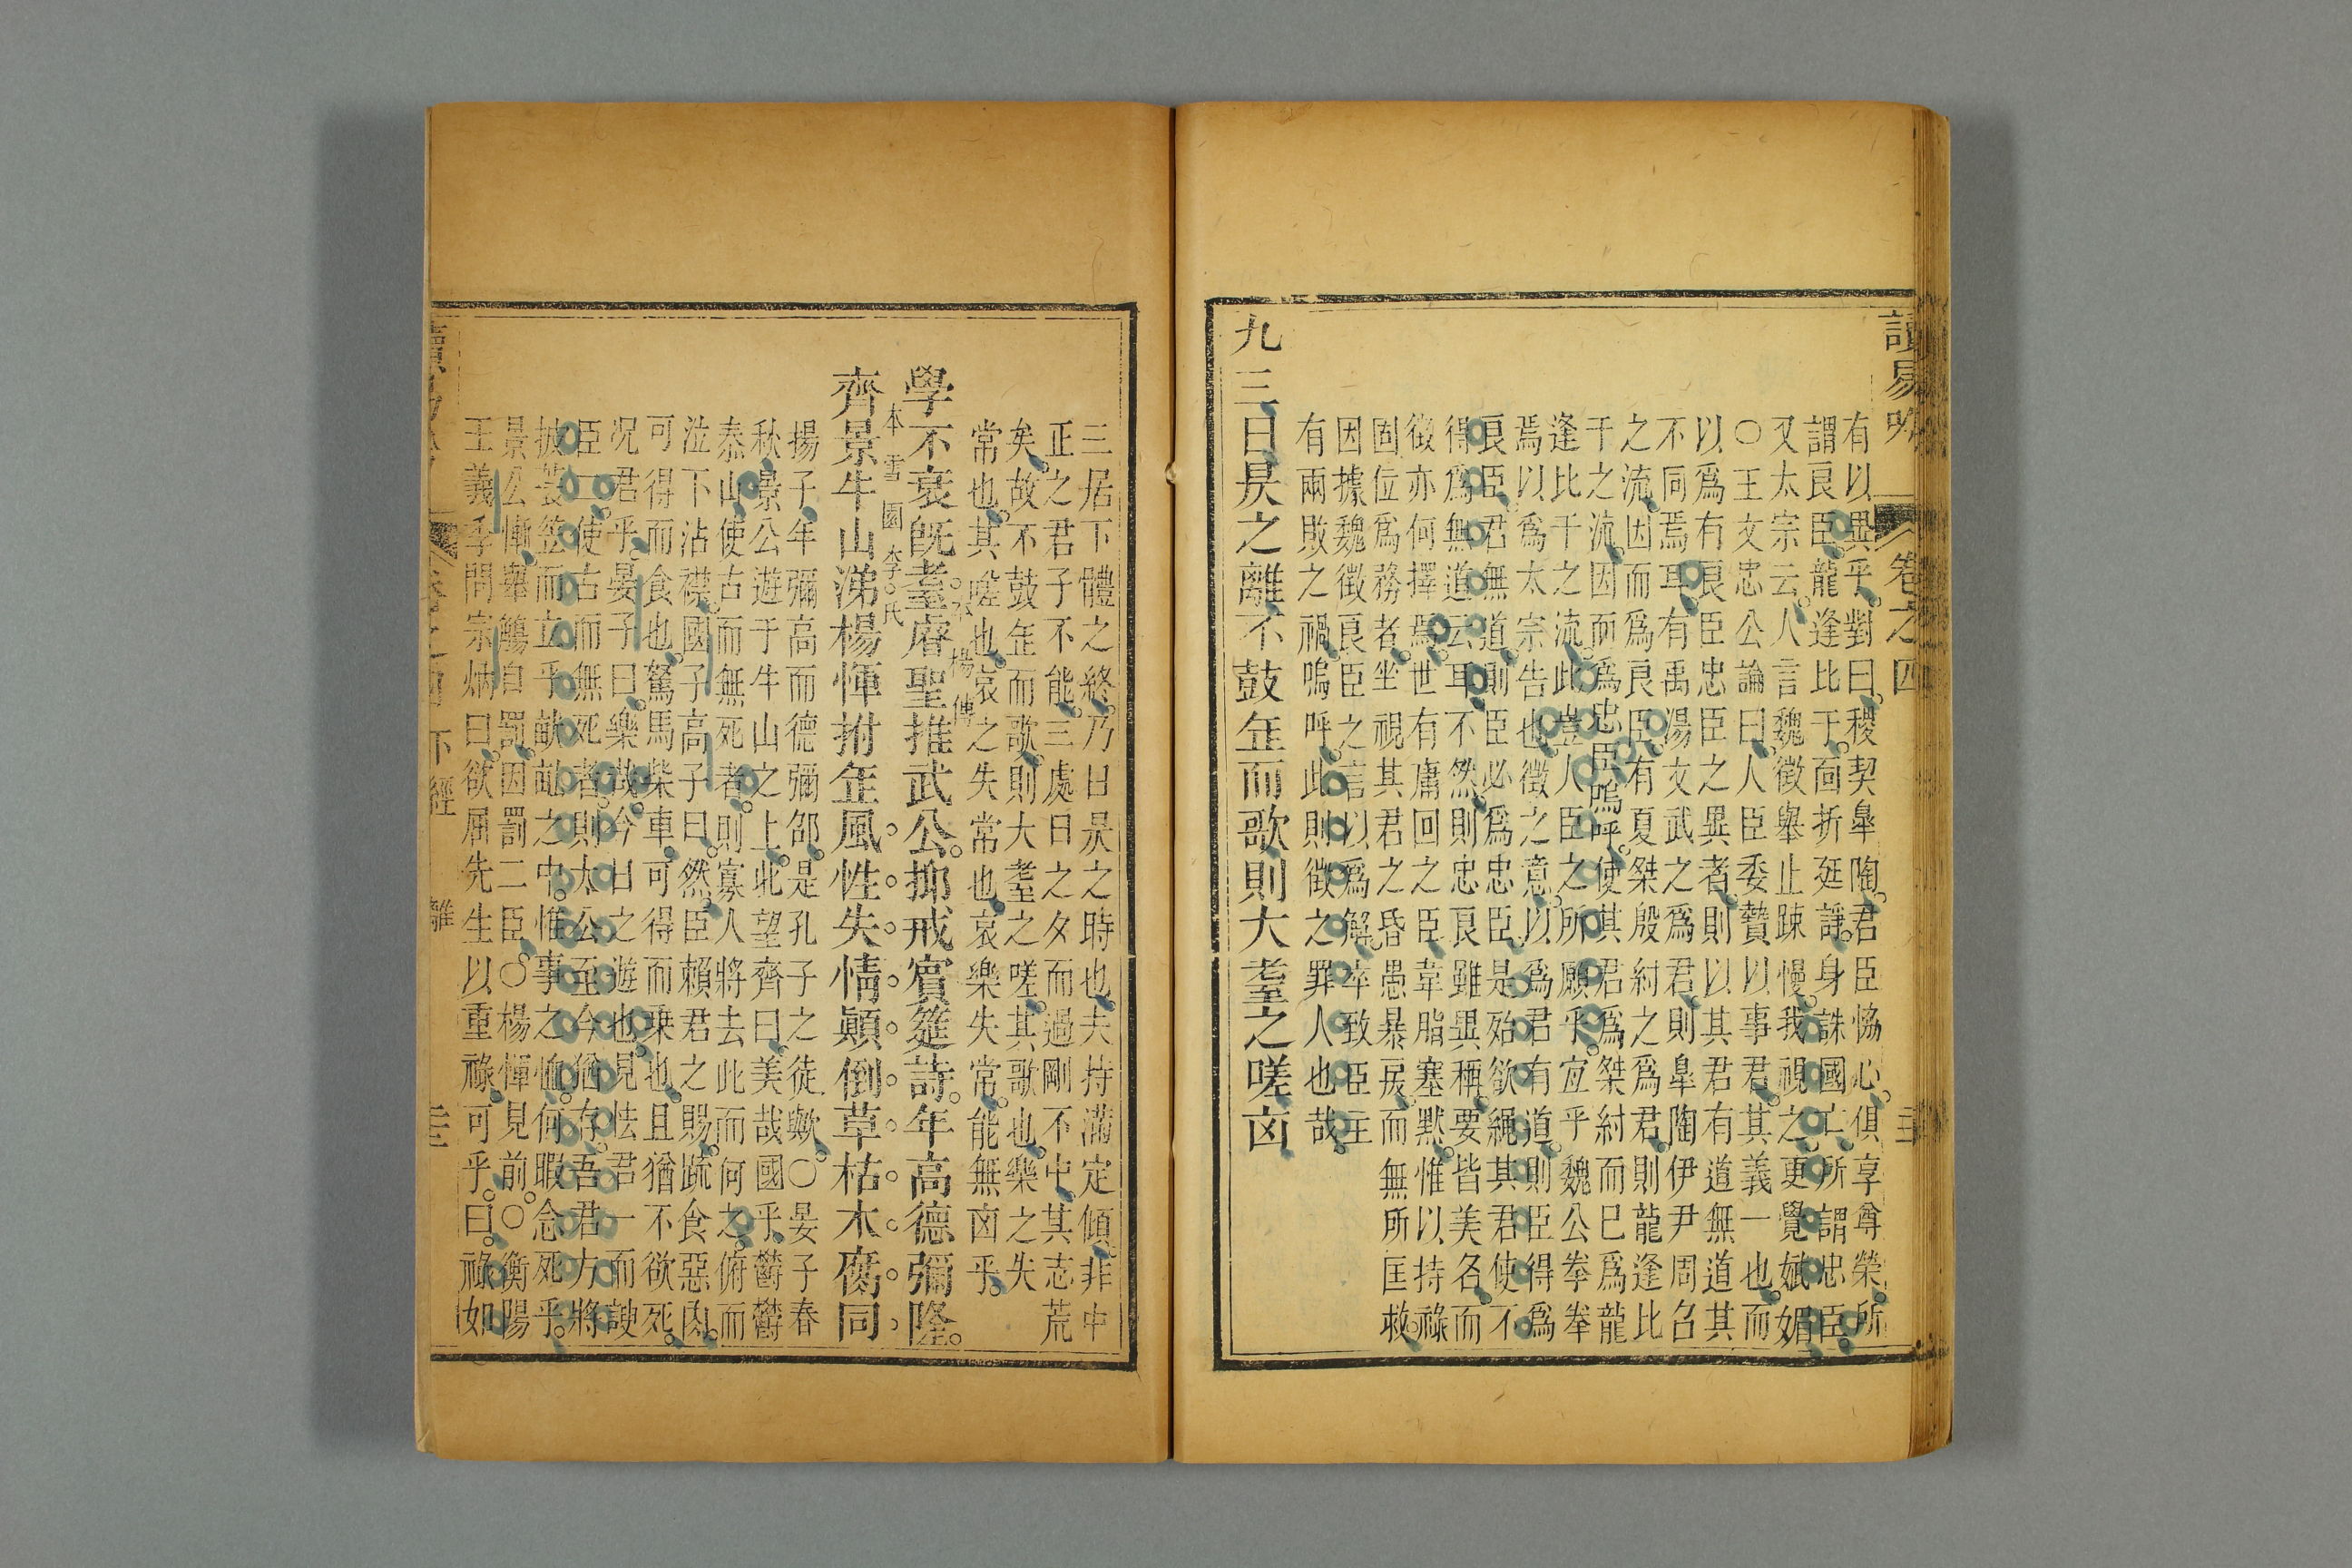 讀易 卷之四
有以異乎對曰稷契臯陶君臣恊心俱享尊榮所
謂良臣龍逢比于靣折廷諍身誅國亡所謂忠臣
又太宗云人言魏徵舉止踈慢我視之更覺娬媚
○王文忠公論曰人臣委贄以事君其義一也而
以爲有良臣忠臣之異者則以其君有道無道其
不同焉耳有禹湯文武之爲君則臯陶伊尹周召
之流因而爲良臣有夏桀殷紂之爲君則龍逢比
干之流因而爲忠臣嗚呼使其君爲桀紂而已爲龍
逢比干之流此豈人臣之所願乎宜乎魏公拳拳
焉以爲太宗告也徵之意以爲君有道則臣得爲
良臣君無道則臣必爲忠臣是殆欲繩其君使不
得爲無道云耳不然則忠良雖異稱要皆美名而
徵亦何擇焉世有庸回之臣韋脂塞默惟以持祿
固位爲務者坐視其君之昏愚暴戾而無所匡救
因據魏徵良臣之言以爲解卒致臣主
有兩敗之禍嗚呼此則徵之罪人也哉
九三日昃之離不鼓缶而歌則大耋之嗟凶
三居下體之終乃日昃之時也夫持滿定傾非中
正之君子不能三處日之夕而過剛不中其志荒
矣故不鼓缶而歌則大耋之嗟其歌也樂之失
常也其嗟也哀之失常也哀樂失常能無凶乎
本楊傳
學不衰旣耄睿聖推武公抑戒賓筵詩年高德彌隆
本雪園李氏
齊景牛山涕楊惲拊缶風性失情顚倒草枯木腐同
揚子年彌高而德彌邵是孔子之徒歟○晏子春
秋景公遊于牛山之上北望齊曰美哉國乎鬱鬱
泰山使古而無死者則寡人將去此而何之俯而
泣下沾襟國子高子曰然臣賴君之賜䟽食惡肉
可得而食也駑馬柴車可得而乗也且猶不欲死
况君乎晏子曰樂哉今日之遊也見怯君一而諛
臣二使古而無死者則太公至今猶存吾君方將
披蓑笠而立乎畎畝之中惟事之恤何暇念死乎
景公慚舉觴自罰因罰二臣○楊惲見前○衡陽
王義季問宗炳曰欲屈先生以重祿可乎曰祿如
卷之四 下經 離